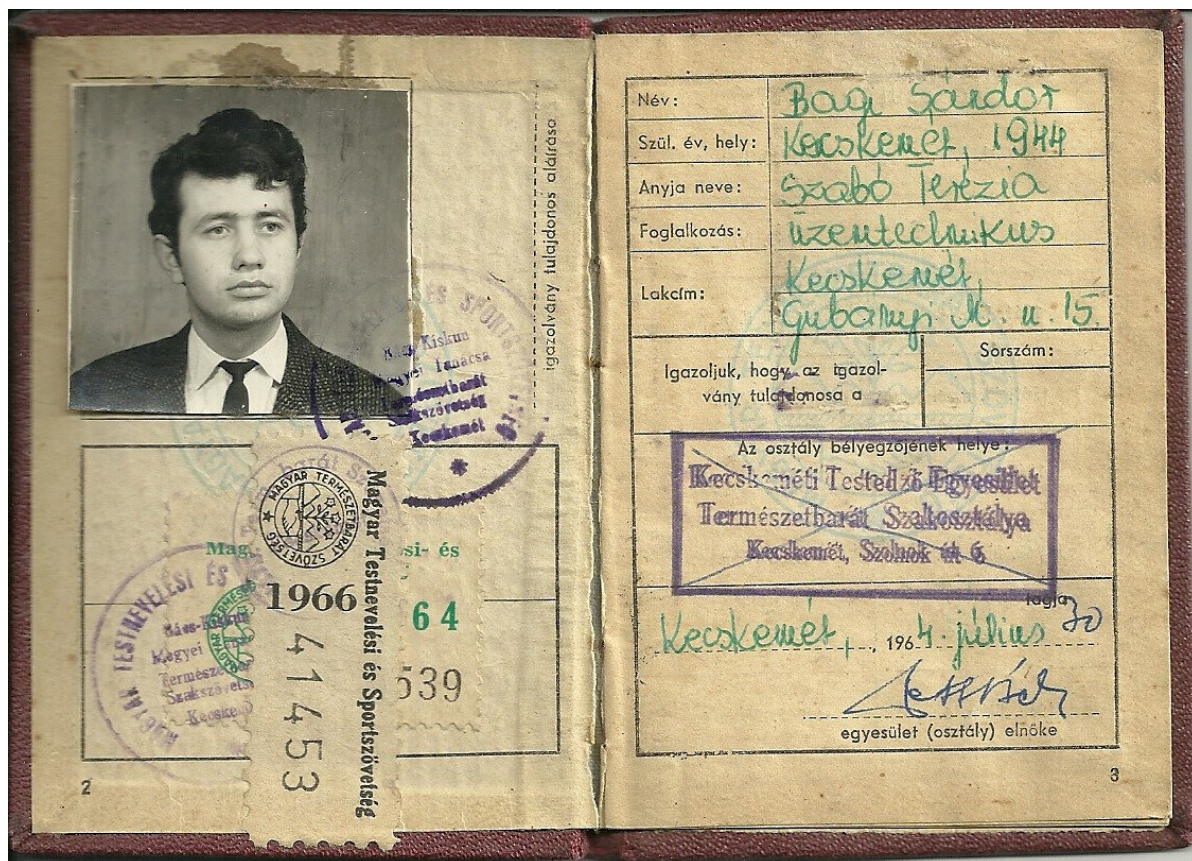 igazolvány tulajdonos aláírása
Bács-Kiskun
Megyei Tanácsa
Természetbarát
Szakszövetség
Kecskemét
MAGYAR TERMÉSZETBARÁT SZÖVETSÉG
1966
41453
Magyar Testnevelési és Sportszövetség
Mag
si- és
64
539
MAGYAR TESTNEVELÉSI ÉS
Bács-Kiskun
Megyei
Természe
Szakszövets
Kecske
2
Név: Bagi Sándor
Szül. év, hely: Kecskemét, 1944
Anyja neve: Szabó Terézia
Foglalkozás: üzemtechnikus
Lakcím: Kecskemét,
Gubányi K. u. 15.
Igazoljuk, hogy az igazol-
vány tulajdonosa a
Sorszám:
Az osztály bélyegzőjének helye:
Kecskeméti Testedző Egyesület
Természetbarát Szakosztálya
Kecskemét, Szolnok út 6
tagja
Kecskemét, , 1964. július 30
egyesület (osztály) elnöke
3